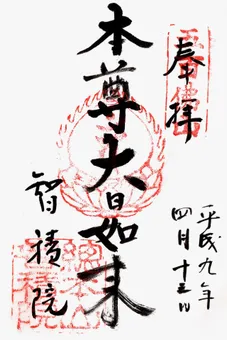 奉拝
平成九年
四月十三日
本尊大日如来
智積院